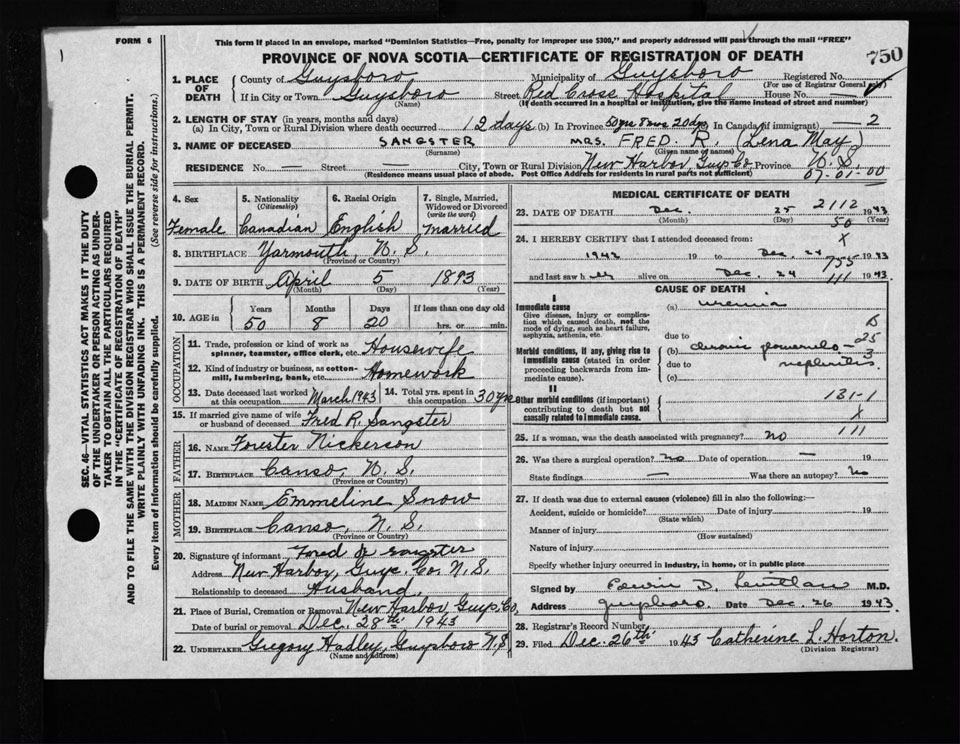 FORM 6
This form if placed in an envelope, marked "Dominion Statistics—Free, penalty for improper use $300," and properly addressed will pass through the mail "FREE"
PROVINCE OF NOVA SCOTIA—CERTIFICATE OF REGISTRATION OF DEATH
750
1. PLACE OF DEATH
County of Guysboro Municipality of Guysboro Registered No.
(For use of Registrar General only)
If in City or Town Guysboro Street Red Cross Hospital House No. —
(Name) (If death occurred in a hospital or institution, give the name instead of street and number)
2. LENGTH OF STAY (in years, months and days)
(a) In City, Town or Rural Division where death occurred 12 days (b) In Province 50 yrs 8 mos 20 dys In Canada (if immigrant) — 2
3. NAME OF DECEASED SANGSTER MRS. FRED. R. (Lena May)
(Surname) (Given name of names)
RESIDENCE No. — Street — City, Town or Rural Division New Harbor, Guys Co Province N. S.
(Residence means usual place of abode. Post Office Address for residents in rural parts not sufficient) 07-01-00
4. Sex
Female
5. Nationality
(Citizenship)
Canadian
6. Racial Origin
English
7. Single, Married, Widowed or Divorced
(write the word)
Married
8. BIRTHPLACE Yarmouth, N. S.
(Province or Country)
9. DATE OF BIRTH April 5 1893
(Month) (Day) (Year)
10. AGE in
Years Months Days If less than one day old
50 8 20 hrs. or min.
OCCUPATION
11. Trade, profession or kind of work as spinner, teamster, office clerk, etc. Housewife
12. Kind of industry or business, as cotton-mill, lumbering, bank, etc. Homework
13. Date deceased last worked at this occupation March 1943
14. Total yrs. spent in this occupation 30 yrs
15. If married give name of wife or husband of deceased Fred R. Sangster
FATHER
16. NAME Forester Nickerson
17. BIRTHPLACE Canso, N. S.
(Province or Country)
MOTHER
18. MAIDEN NAME Emmeline Snow
19. BIRTHPLACE Canso, N. S.
(Province or Country)
20. Signature of informant Fred R Sangster
Address New Harbor, Guys. Co. N. S.
Relationship to deceased Husband
21. Place of Burial, Cremation or Removal New Harbor Guys. Co,
Date of burial or removal Dec. 28th 1943
22. UNDERTAKER Gregory Hadley, Guysboro N.S.
(Name and address)
MEDICAL CERTIFICATE OF DEATH
23. DATE OF DEATH Dec. 25 2112 1943
(Month) (Day) 50 (Year)
24. I HEREBY CERTIFY that I attended deceased from: X
1942 19 to Dec. 24 1943
755
and last saw her alive on Dec. 24 111 1943.
CAUSE OF DEATH
I
Immediate cause
Give disease, injury or complication which caused death, not the mode of dying, such as heart failure, asphyxia, asthenia, etc.
(a) uremia
due to
Morbid conditions, if any, giving rise to immediate cause (stated in order proceeding backwards from immediate cause).
(b) chronic
25
due to nephritis 3
(c)
II
Other morbid conditions (if important) contributing to death but not causally related to immediate cause.
131-1
X
111
25. If a woman, was the death associated with pregnancy? no
26. Was there a surgical operation? no Date of operation — 19
State findings — Was there an autopsy? No
27. If death was due to external causes (violence) fill in also the following:—
Accident, suicide or homicide? Date of injury 19
(State which)
Manner of injury
(How sustained)
Nature of injury
Specify whether injury occurred in industry, in home, or in public place
Signed by Edwin D. M.D.
Address Guysboro. Date Dec. 26 1943.
28. Registrar's Record Number
29. Filed Dec. 26th 1943 Catherine L. Horton.
(Division Registrar)
SEC. 46—VITAL STATISTICS ACT MAKES IT THE DUTY
OF THE UNDERTAKER OR PERSON ACTING AS UNDER-
TAKER TO OBTAIN ALL THE PARTICULARS REQUIRED
IN THE "CERTIFICATE OF REGISTRATION OF DEATH"
AND TO FILE THE SAME WITH THE DIVISION REGISTRAR WHO SHALL ISSUE THE BURIAL PERMIT.
WRITE PLAINLY WITH UNFADING INK. THIS IS A PERMANENT RECORD.
Every item of information should be carefully supplied. (See reverse side for instructions.)